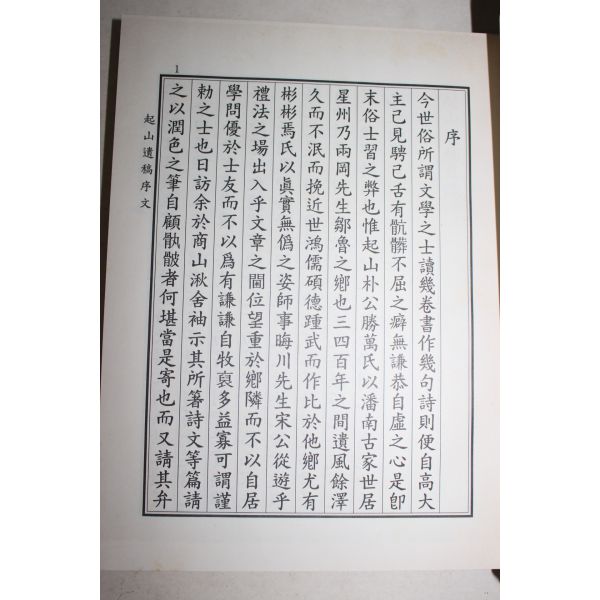 序
今世俗所謂文學之士讀幾卷書作幾句詩則便自高大
主己見騁己舌有骯髒不屈之癖無謙恭自虛之心是卽
末俗士習之弊也惟起山朴公勝萬氏以潘南古家世居
星州乃兩岡先生鄒魯之鄕也三四百年之間遺風餘澤
久而不泯而挽近世鴻儒碩德踵武而作比於他鄕尤有
彬彬焉氏以眞實無僞之姿師事晦川先生宋公從遊乎
禮法之場出入乎文章之閫位望重於鄕隣而不以自居
學問優於士友而不以爲有謙謙自牧裒多益寡可謂謹
勅之士也日訪余於商山湫舍袖示其所箸詩文等篇請
之以潤色之筆自顧骩骳者何堪當是寄也而又請其弁
起山遺稿序文
1